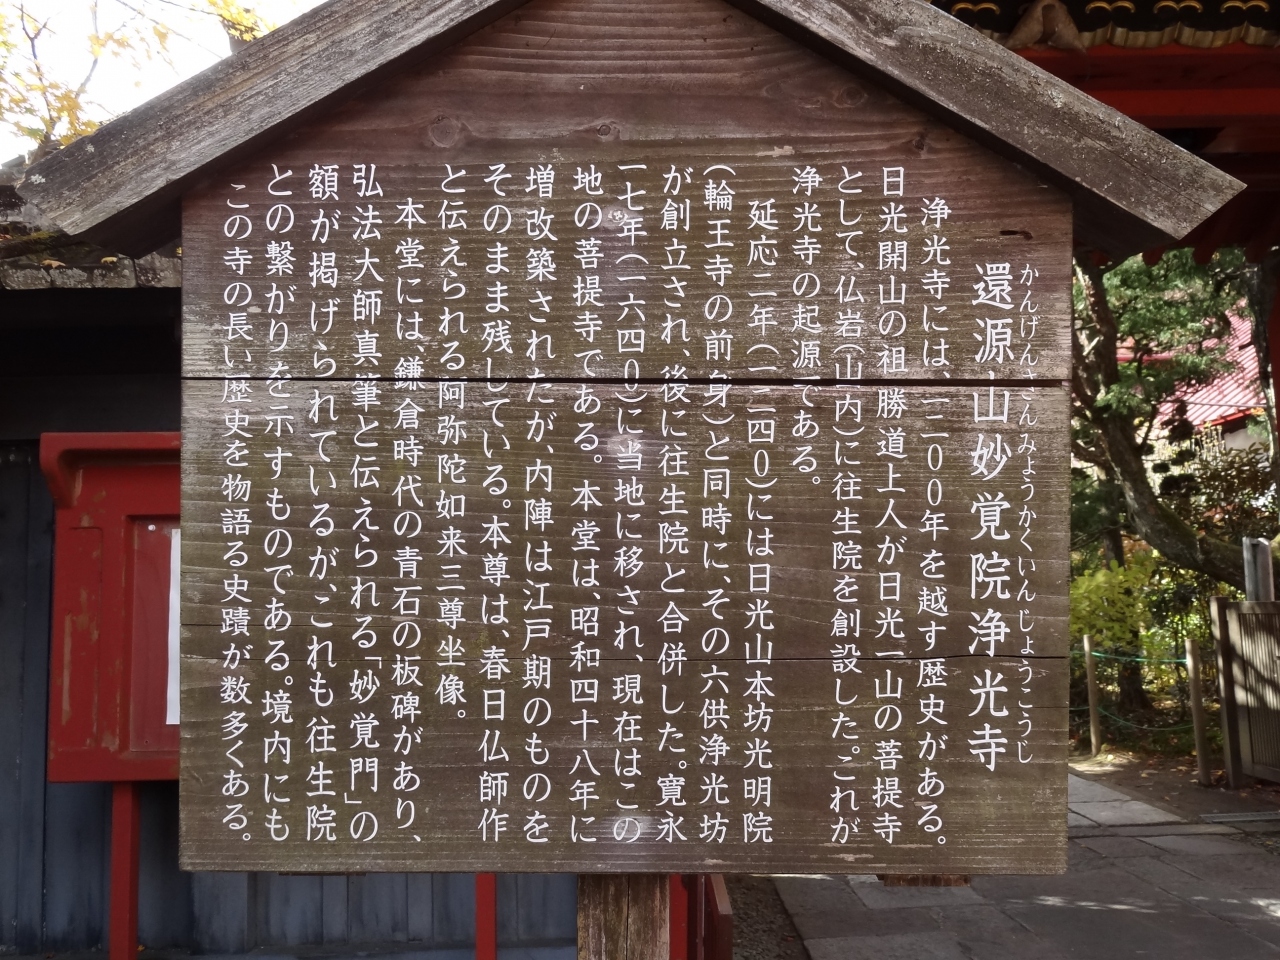 還源山妙覚院浄光寺
かんげんさんみょうかくいんじょうこうじ
浄光寺には、一二〇〇年を越す歴史がある。
日光開山の祖勝道上人が日光一山の菩提寺
として、仏岩(山内)に往生院を創設した。これが
浄光寺の起源である。
延応二年(一二四〇)には日光山本坊光明院
(輪王寺の前身)と同時に、その六供浄光坊
が創立され、後に往生院と合併した。寛永
一七年(一六四〇)に当地に移され、現在はこの
地の菩提寺である。本堂は、昭和四十八年に
増改築されたが、内陣は江戸期のものを
そのまま残している。本尊は、春日仏師作
と伝えられる阿弥陀如来三尊坐像。
本堂には、鎌倉時代の青石の板碑があり、
弘法大師真筆と伝えられる「妙覚門」の
額が掲げられているが、これも往生院
との繋がりを示すものである。境内にも
この寺の長い歴史を物語る史蹟が数多くある。